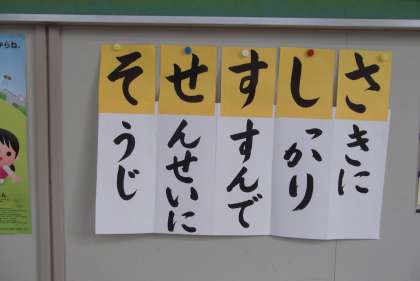 さきに
しっかり
すすんで
せんせいに
そうじ